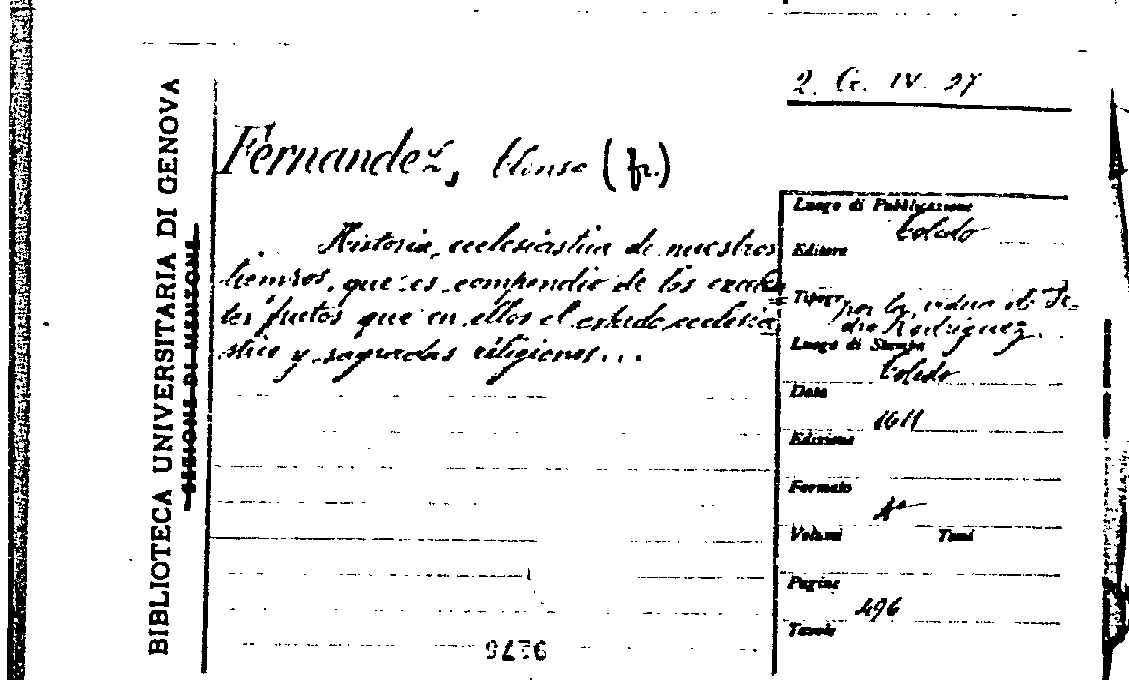 BIBLIOTECA UNIVERSITARIA DI GENOVA
SEZIONE DI MENTONE
2. G. IV. 27
Fernandez, Alonso (fr.)
Historia, ecclesiastica de nuestros
tiempos, que es compendio de los excelen=
tes frutos que en ellos el estado ecclesia=
stico y sagradas religiones...
Luogo di Pubblicazione
Toledo
Editore
Tipogr. por la viudua de Pe=
dro Rodriguez.
Luogo di Stampa
Toledo
Data
1611
Edizione
Formato
4°
Volumi Tomi
Pagine
496
Tavole